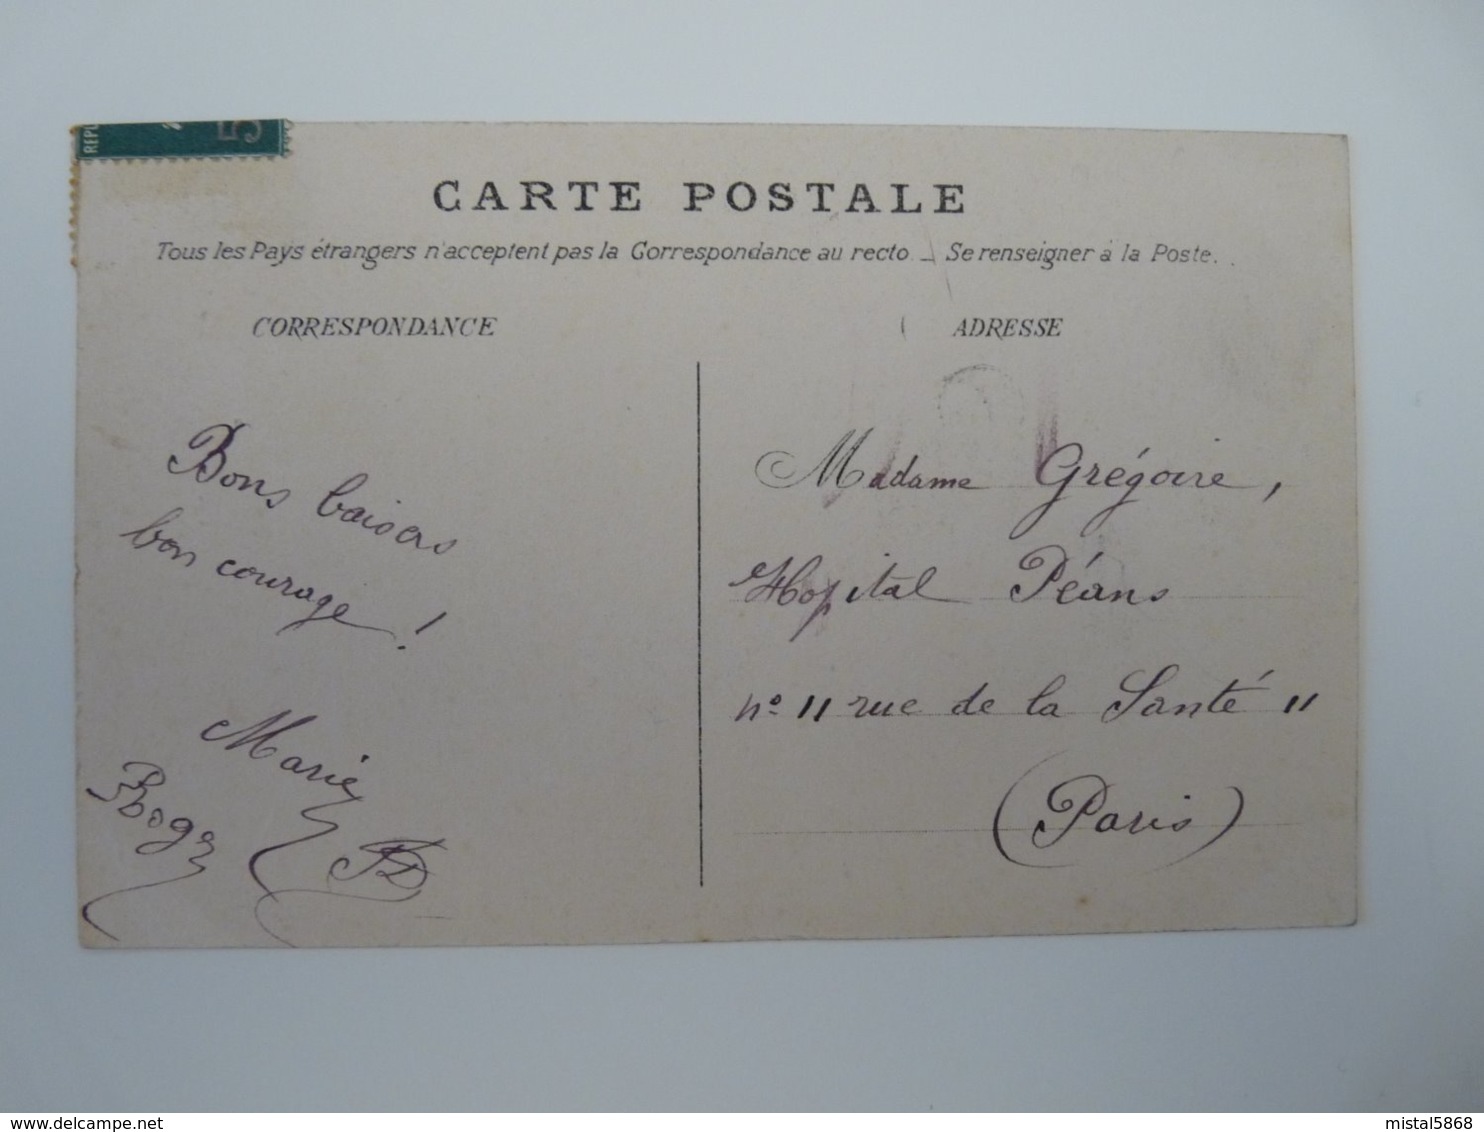 REPU
5
CARTE POSTALE
Tous les Pays étrangers n'acceptent pas la Correspondance au recto. _ Se renseigner à la Poste.
CORRESPONDANCE
ADRESSE
Bons baisers
bon courage !
Marie
Madame Grégoire,
Hopital Péans
nº 11 rue de la Santé 11
(Paris)
delcampe.net
mistal5868